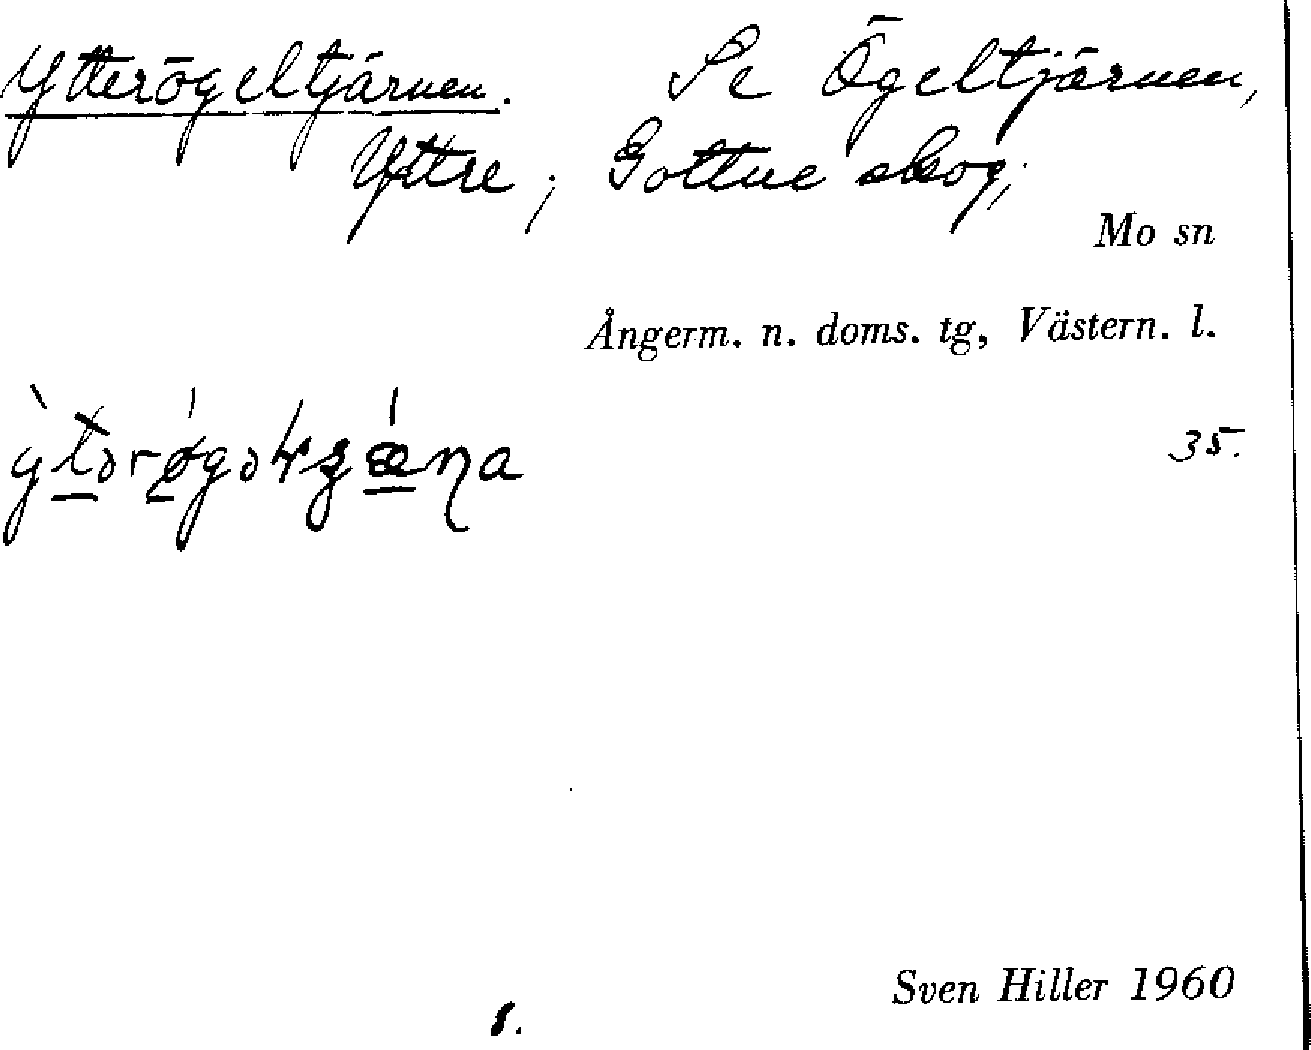 Ytterögeltjärnen. Se Ögeltjärnen,
Yttre; Gottne skog;
Mo sn
Ångerm. n. doms. tg, Västern. l.
35.
Sven Hiller 1960